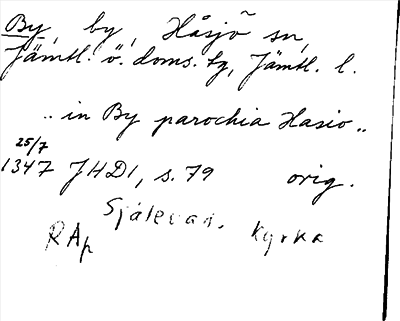 By, by, Håsjö sn,
Jämtl. ö. doms. tg, Jämtl. l.
.. in By parochia Hasio ..
25/7
1347 JHD1, s. 79 orig.
Själevad. Kyrka
RAp